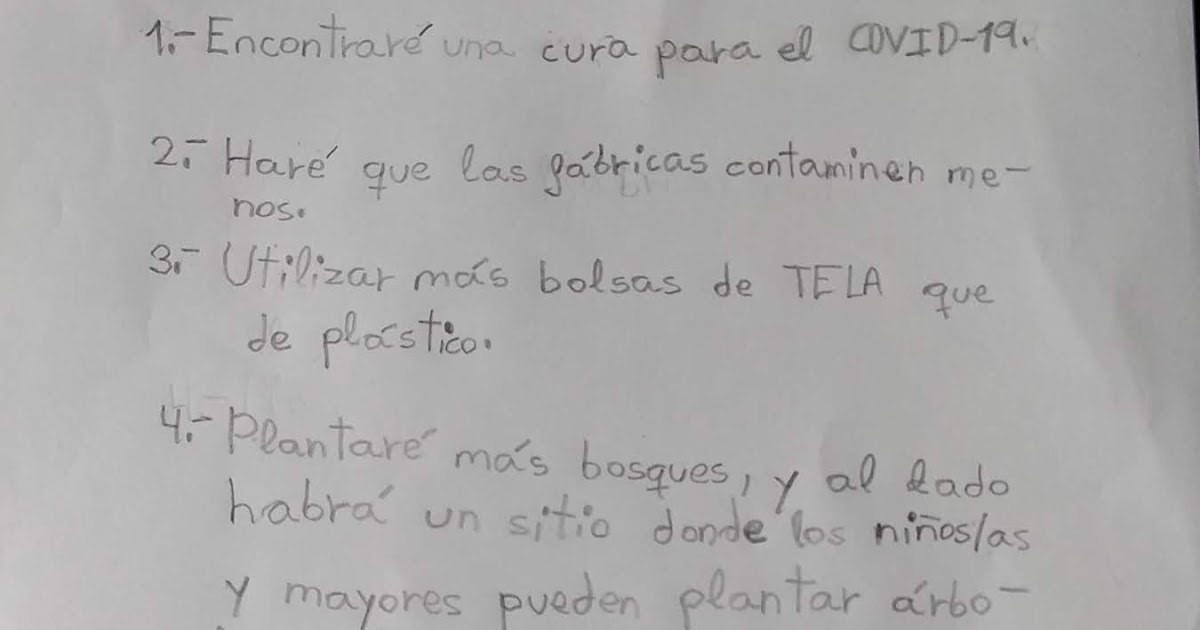 1.- Encontraré una cura para el COVID-19.
2.- Haré que las fábricas contaminen me-
nos.
3.- Utilizar más bolsas de TELA que
de plástico.
4.- Plantaré más bosques, y al lado
habrá un sitio donde los niños/as
y mayores pueden plantar árbo-